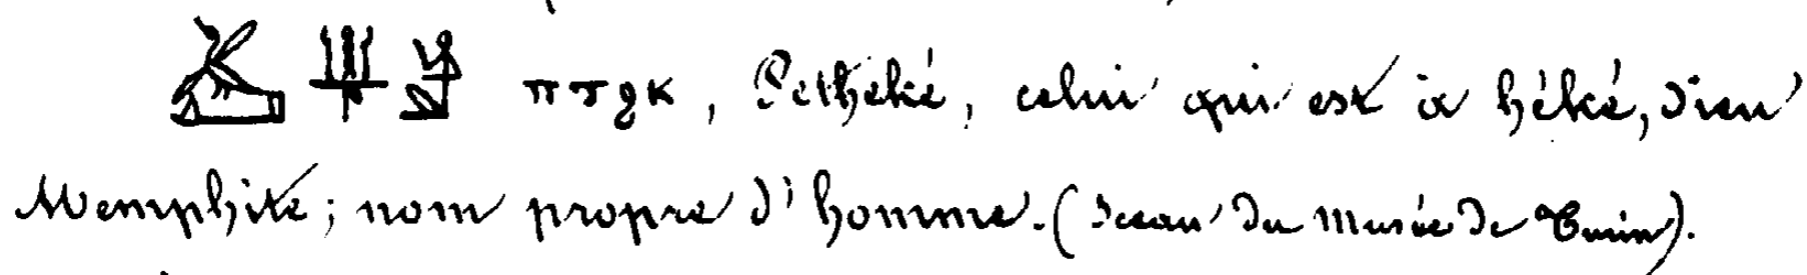 ⲡⲧϩⲕ, Petheké, celui qui est à héké, dieu
Memphite; nom propre d'homme. (Sceau du Musée de Turin).